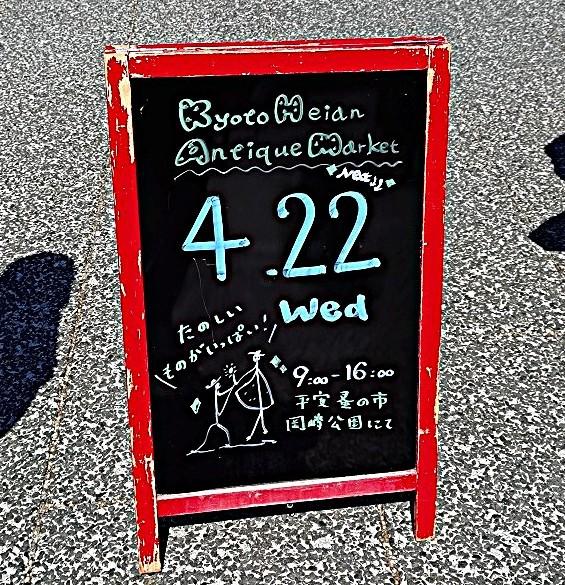 Kyoto Heian
Antique Market
Next!!
4.22
Wed
たのしい
ものがいっぱい!!
9:00-16:00
平安蚤の市
岡崎公園にて